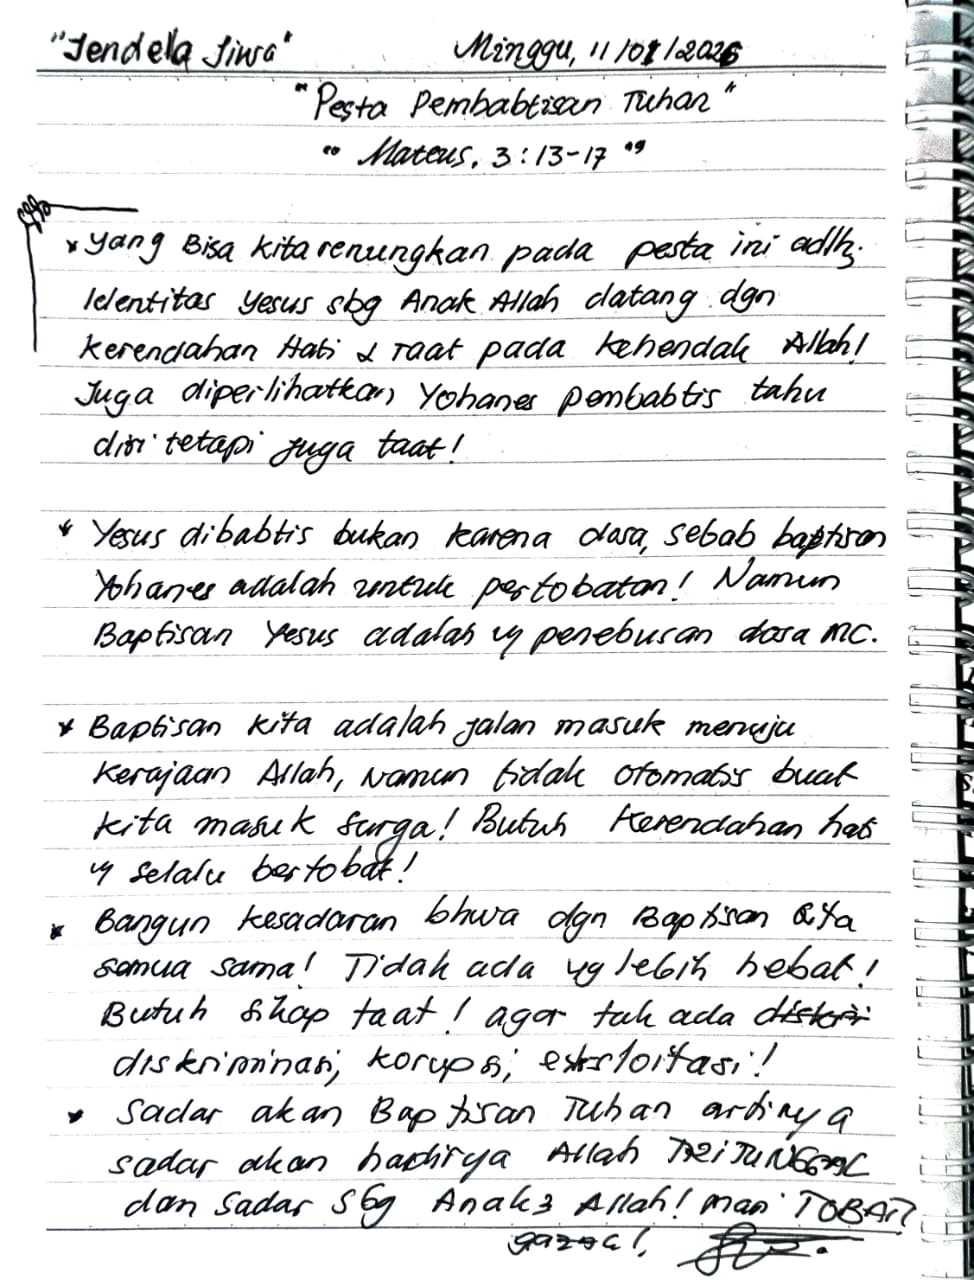 "Jendela Jiwa" Minggu, 11/01/2026
"Pesta Pembabtisan Tuhan"
"Mateus, 3:13-17"
* Yang Bisa kita renungkan pada pesta ini adlh.
Identitas Yesus sbg Anak Allah datang dgn
Kerendahan Hati & Taat pada Kehendak Allah!
Juga diperlihatkan Yohanes pembabtis tahu
diri tetapi juga taat!
* Yesus dibabtis bukan karena dosa, sebab baptisan
Yohanes adalah untuk pertobatan! Namun
Baptisan Yesus adalah penebusan dosa
* Baptisan kita adalah jalan masuk menuju
Kerajaan Allah, Namun tidak otomatis buat
kita masuk surga! Butuh Kerendahan hati
selalu bertobat!
* Bangun kesadaran bhwa dgn Baptisan kita
semua sama! Tidak ada yg lebih hebat!
Butuh sikap taat! agar tak ada diskri
diskriminasi, korupsi, eksploitasi!
* Sadar akan Baptisan Tuhan artinya
sadar akan hadirnya Allah TRITUNGGAL
dan sadar sbg Anak2 Allah! mari TOBAT